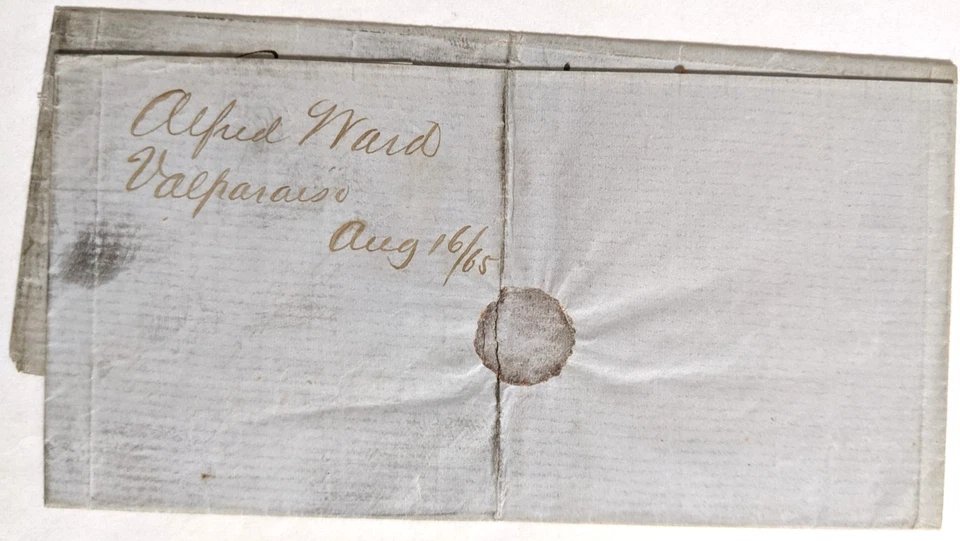 Alfred Ward
Valparaiso
Aug 16/65